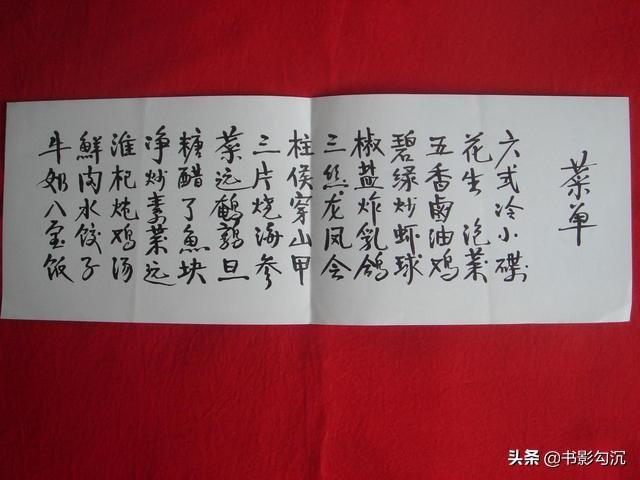 菜单
六式冷小碟
花生 泡菜
五香鹵油鸡
碧绿炒虾球
椒盐炸乳鸽
三丝龙凤会
柱侯穿山甲
三片烧海参
菜远鹌鹑旦
糖醋了魚块
净炒素菜远
淮杞炖鸡汤
鮮肉水饺子
牛奶八宝饭
头条 @书影勾沉